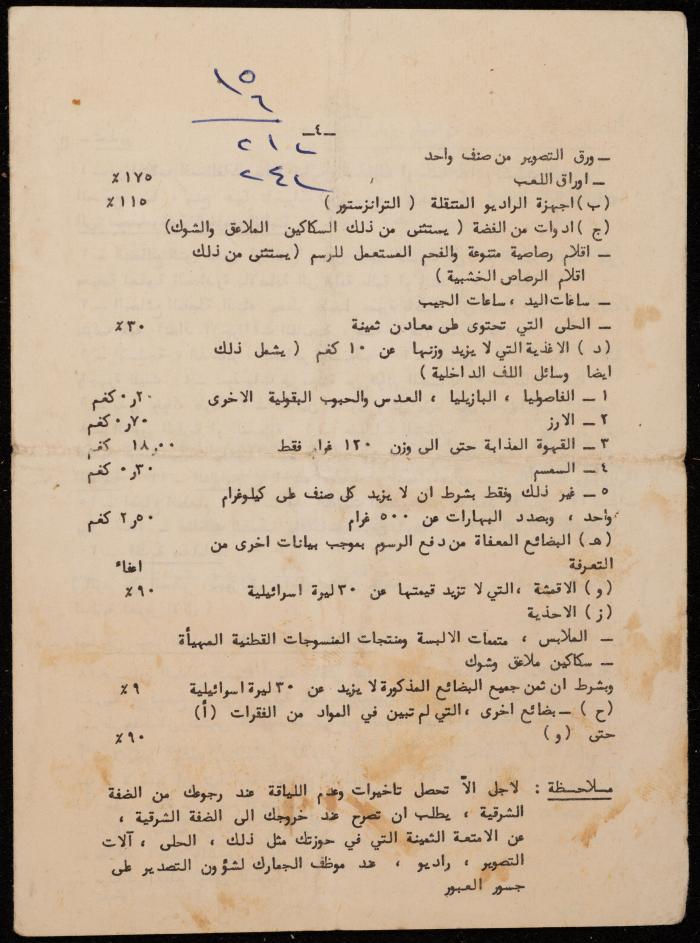 ١٥٦
٢١٢
٢٤٢
ــ٤ــ
ــ ورق التصوير من صنف واحد
ــ اوراق اللعب ١٧٥٪
(ب) اجهزة الراديو المتنقلة ( الترانزستور ) ١١٥٪
(ج ) ادوات من الفضة ( يستثنى من ذلك السكاكين الملاعق والشوك)
ــ اقلام رصاصية متنوعة والفحم المستعمل للرسم (يستثنى من ذلك
اقلام الرصاص الخشبية )
ــ ساعات اليد ، ساعات الجيب
ــ الحلى التي تحتوى على معادن ثمينة ٣٠٪
(د ) الاغذية التي لا يزيد وزنها عن ١٠ كغم ( يشمل ذلك
ايضا وسائل اللف الداخلية )
١ ــ الفاصوليا ، البازيليا ، العدس والحبوب البقولية الاخرى ٢٠ر٠ كغم
٢ ــ الارز ٧٠ر٠ كغم
٣ ــ القهوة المذابة حتى الى وزن ١٢٠ غرام فقط ١٨٫٠٠ كغم
٤ ــ السمسم ٣٠ر٠ كغم
٥ ــ غير ذلك وفقط بشرط ان لا يزيد كل صنف على كيلوغرام
واحد ، وبصدد البهارات عن ٥٠٠ غرام ٥٠ر٢ كغم
(هـ) البضائع المعفاة من دفع الرسوم بموجب بيانات اخرى من
التعرفة اعفاء
(و ) الاقمشة ، التي لا تزيد قيمتها عن ٣٠ ليرة اسرائيلية ٩٠٪
(ز ) الاحذية
ــ الملابس ، متممات الالبسة ومنتجات المنسوجات القطنية المهيأة
ــ سكاكين ملاعق وشوك
وبشرط ان ثمن جميع البضائع المذكورة لا يزيد عن ٣٠ ليرة اسرائيلية ٩٪
(ح ) ــ بضائع اخرى ، التي لم تبين في المواد من الفقرات (أ)
حتى (و ) ٩٠٪
ملاحظة : لاجل الاّ تحصل تاخيرات وعدم اللياقة عند رجوعك من الضفة
الشرقية ، يطلب ان تصرح عند خروجك الى الضفة الشرقية ،
عن الامتعة الثمينة التي في حوزتك مثل ذلك ، الحلى ، آلات
التصوير ، راديو ، عند موظف الجمارك لشؤون التصدير على
جسور العبور